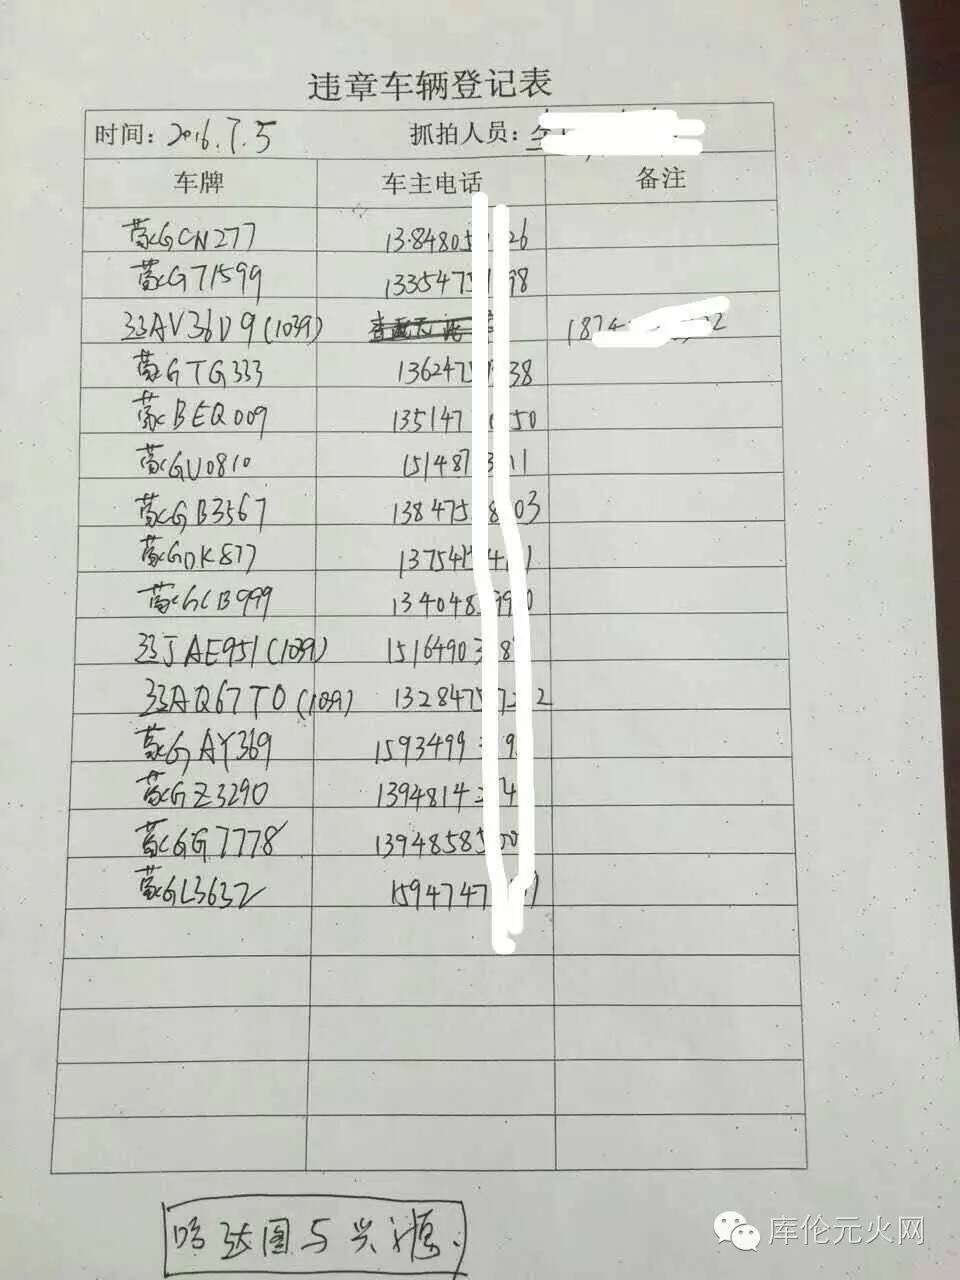 违章车辆登记表
时间：2016.7.5 抓拍人员：
车牌 车主电话 备注
蒙GCN277 1384805 26
蒙G71599 1335475 98
33AV36D9(1039) 187 2
蒙GTG333 1362475 38
蒙BEQ009 135147 50
蒙GU0810 151487 3 11
蒙GB3567 138475 8 03
蒙GDK877 137545 4 1
蒙GCB999 1340485 99 0
33JAE951(1039) 15164903 8
33AQ67T0(1039) 1328475 7 2 2
蒙GAY369 1593499 9
蒙GZ3290 1394814 2 4
蒙GG7778 13948585 00
蒙GL3632 1594747
哈达图与兴源.
库伦元火网